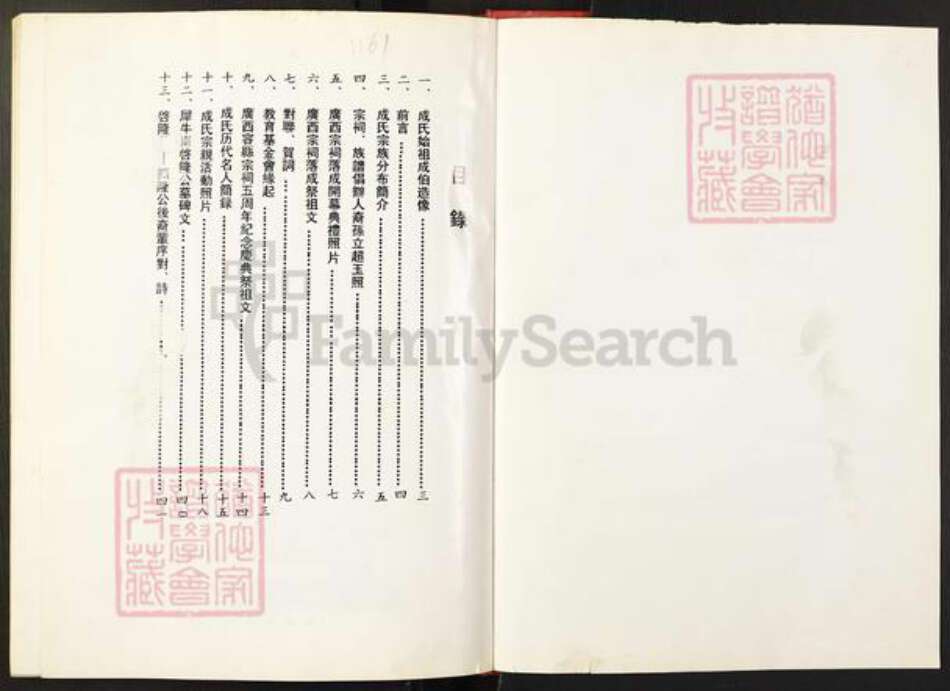 目錄
一、成氏始祖成伯造像……三
二、前言……四
三、成氏宗族分布簡介……五
四、宗祠、族譜倡辦人裔孫立超玉照……六
五、廣西宗祠落成開幕典禮照片……七
六、廣西宗祠落成祭祖文……八
七、對聯、賀詞……九
八、教育基金會緣起……十三
九、廣西容縣宗祠五周年紀念慶典祭祖文……十四
十、成氏历代名人簡録……十五
十一、成氏宗親活動照片……十八
十二、犀牛 啓隆公墓碑文……四〇
十三、啓隆 公後裔 序對、詩……四一
1161
譜學會
收藏
FamilySearch